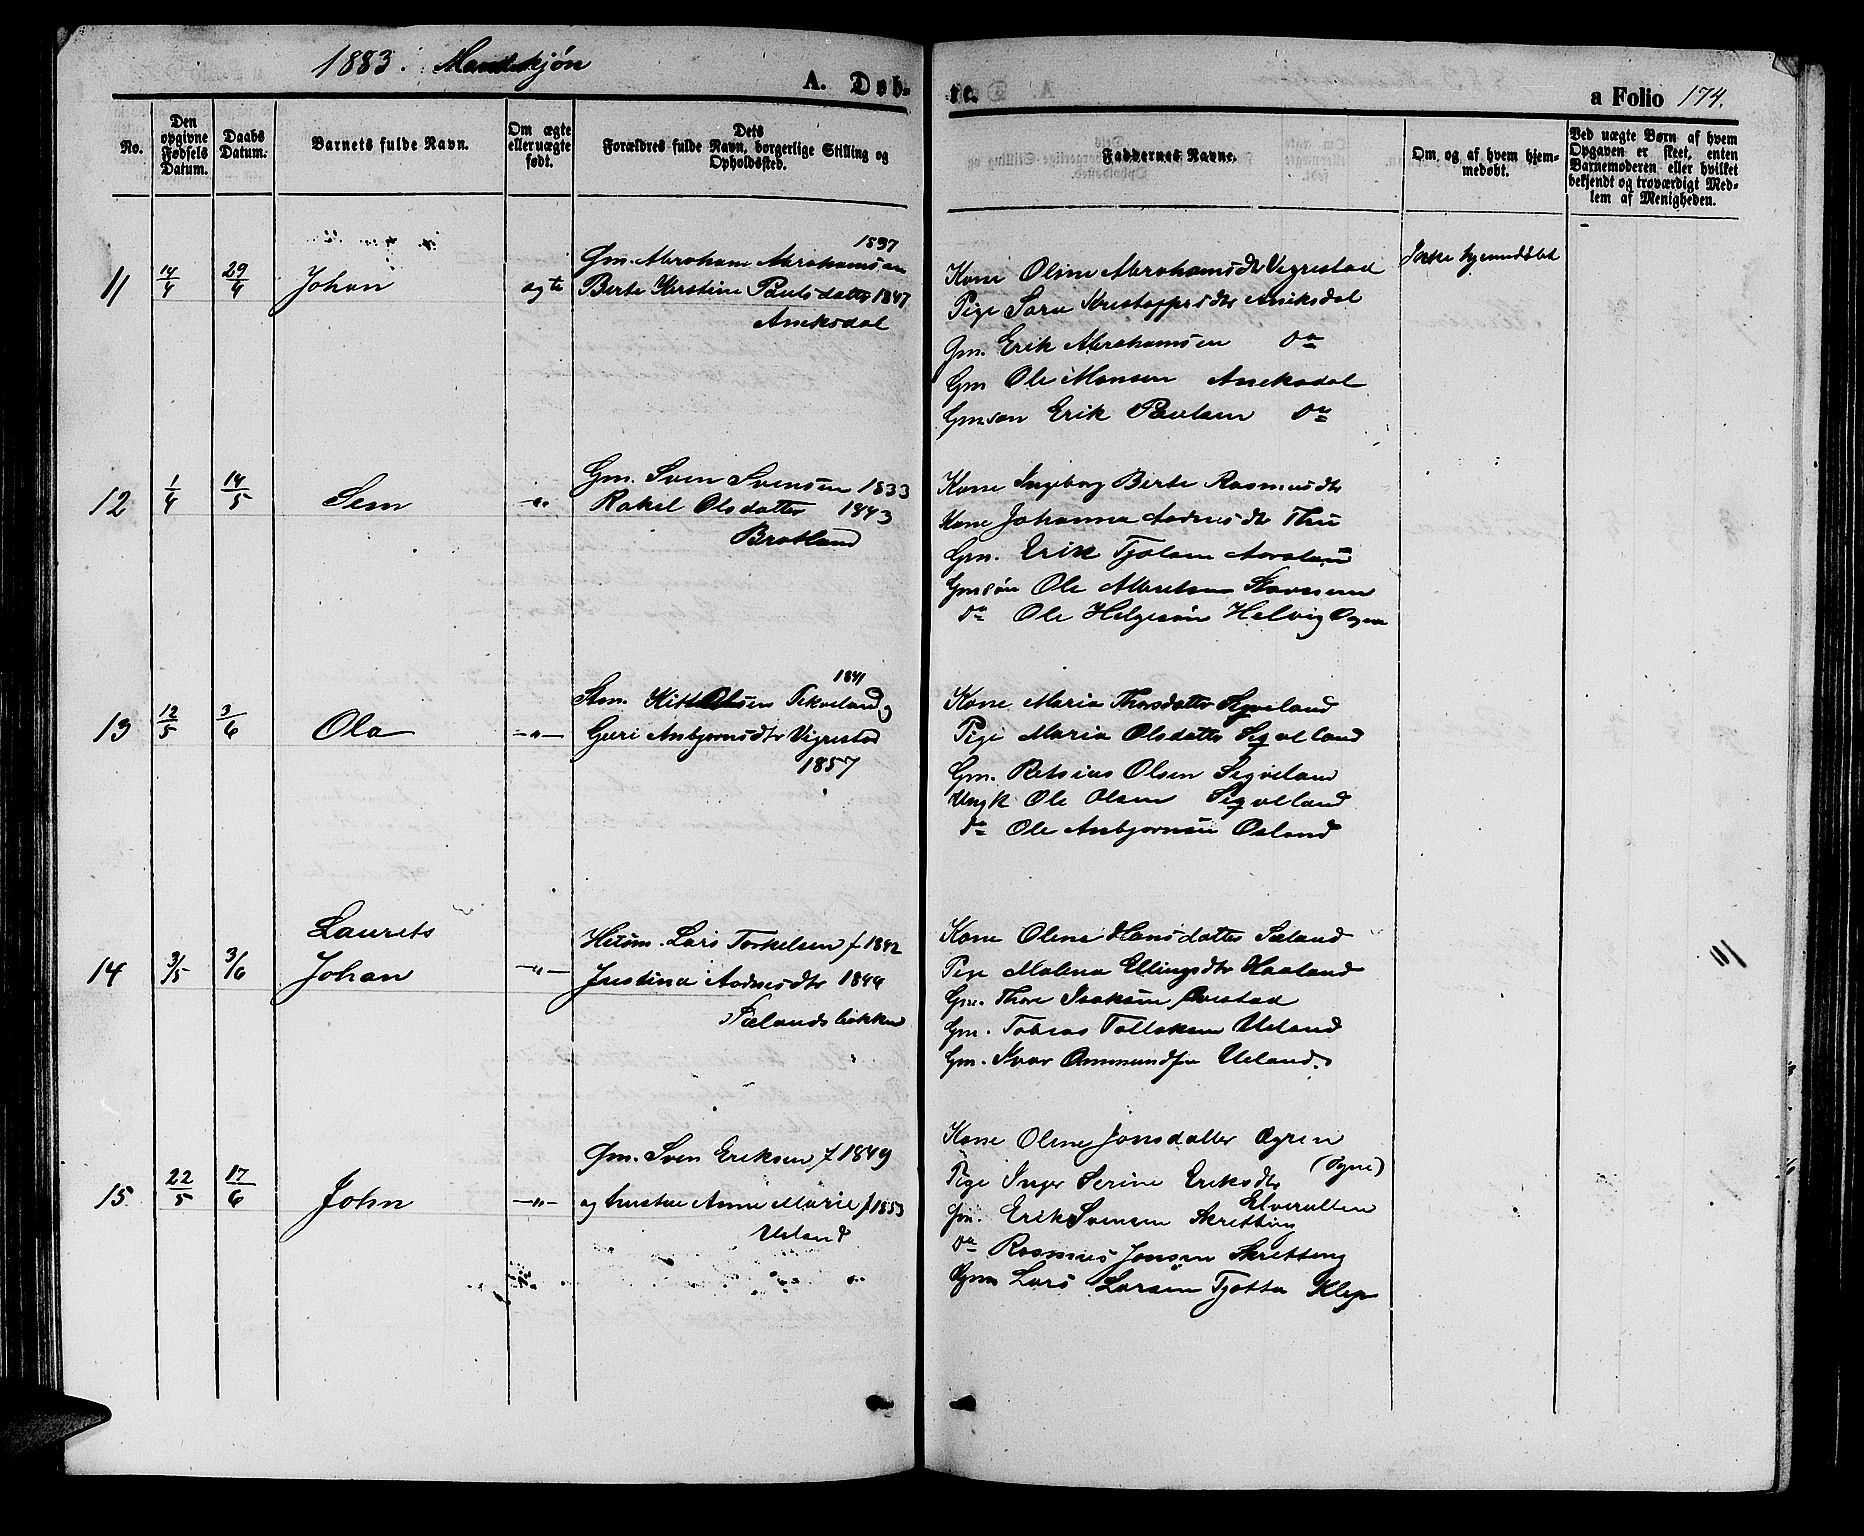 1883. Mandkjøn
A. Døb-
te.
a Folio 174.
No.
Den opgivne Fødsels Datum.
Daabs Datum.
Barnets fulde Navn.
Om ægte eller uægte født.
Dets Forældres fulde Navn, borgerlige Stilling og Opholdssted.
Faddernes Navne.
Om, og af hvem hjemmedøbt.
Ved uægte Børn af hvem Opgaven er skeet, enten Barnemoderen eller hvilket bekjendt og troværdigt Medlem af Menigheden.
11 14/4 29/4 Johan ægte
1837
Gm. Abraham Abrahamsen
Berte Kirstine Paulsdatter 1847
Aniksdal
Kone Oline Abrahamsdtr Vigrestad
Pige Sara Kristoffersdtr Aniksdal
Gm. Erik Abrahamsen do
Gm Ole Monsen Aniksdal
Gmsøn Erik Paulsen do
Ikke hjemmedøbt
12 1/4 14/5 Sem -"-
Gm. Sven Svensen 1833
Rakel Olsdatter 1843
Brotland
Kone Ingeborg Berte Rasmusdtr
Kone Johanna Aadnesdtr Thu
Gm. Erik Tjølsen
Gmsøn Ole
do Ole Helgesøn Helvig Ogna
13 12/5 3/6 Ola -"-
1841
Olsen og
Guri Asbjørnsdtr Vigrestad
1857
Kone Maria Thorsdatter Sigveland
Pige Maria Olsdatter Sigveland
Gm. Olsen Sigveland
Ungk Ole Olsen Sigveland
do Ole Asbjørnsen Osland
14 3/5 3/6 Laurits
Johan -"-
Husm. Lars Torkelsen f 1842
Justina Aadnesdtr 1844
Sælandsbakken
Kone Olene Hansdatter Sæland
Pige Malena Ellingsdtr Haaland
Gm. Thore Isaksen
Gm. Tobias Tollaksen Ueland
Gm. Ivar Ommundsen Ueland.
15 22/5 17/6 John -"-
Gm. Sven Eriksen f 1849
og hustru Anne Marie f 1853
Ueland
Kone Oline Jonsdatter
(Ogne)
Pige Inger Serine Eriksdtr
Gm. Erik Svensen Skretting
do Rasmus Jonsen Skretting
Lars Larsen Tjøtta Klep